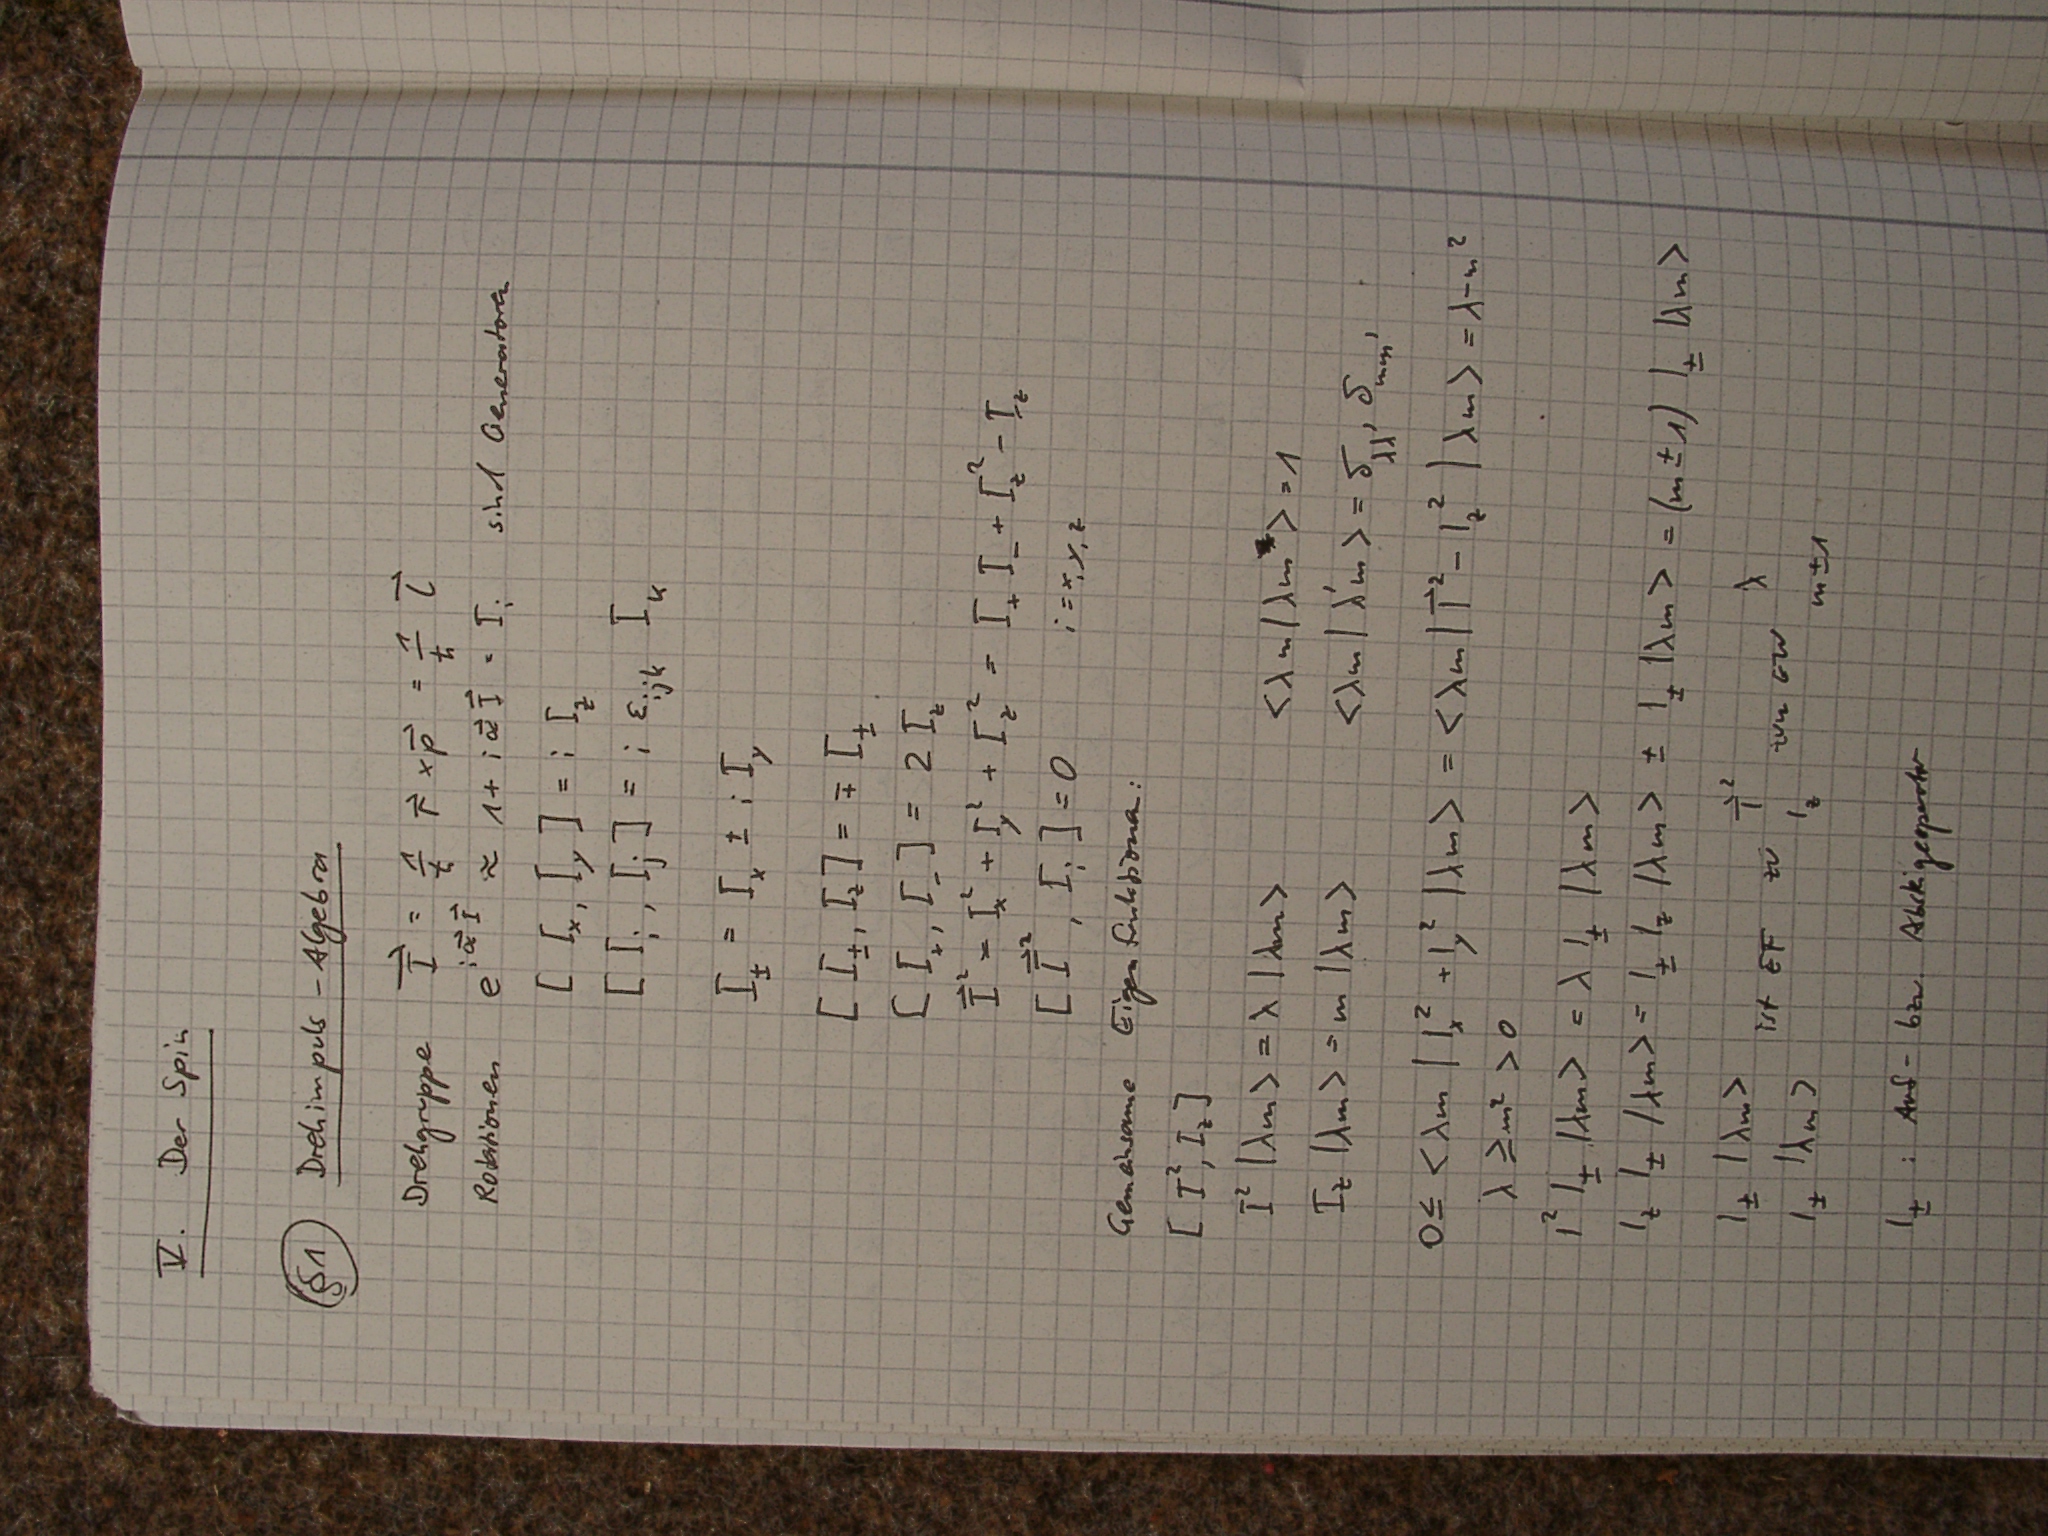 V. Der Spin
§1 Drehimpuls-Algebra
Drehgruppe I⃗ = 1/ħ r⃗ × p⃗ = 1/ħ l⃗
Rotationen e^{iα⃗I⃗} ≈ 1 + iα⃗I⃗ · I_i sind Generatoren
[I_x, I_y] = i I_z
[I_i, I_j] = i ε_{ijk} I_k
I_± = I_x ± i I_y
[I_±, I_z] = ∓ I_±
[I_+, I_-] = 2 I_z
I⃗² = I_x² + I_y² + I_z² = I_+ I_- + I_z² - I_z
[I⃗², I_i] = 0 i = x, y, z
Gemeinsame Eigenfunktionen:
[I², I_z]
I² |λm> = λ |λm> <λm|λm> = 1
I_z |λm> = m |λm> <λm|λ'm> = δ_{λλ'} δ_{mm'}
0 ≤ <λm| I_x² + I_y² |λm> = <λm| I⃗² - I_z² |λm> = λ - m²
λ ≥ m² > 0
I² I_± |λm> = λ I_± |λm>
I_z I_± |λm> = I_± I_z |λm> ± I_± |λm> = (m ± 1) I_± |λm>
I_± |λm> ist EF zu I⃗² zum EW λ
I_± |λm> I_z m±1
I_± : Auf- bzw. Absteigeoperator